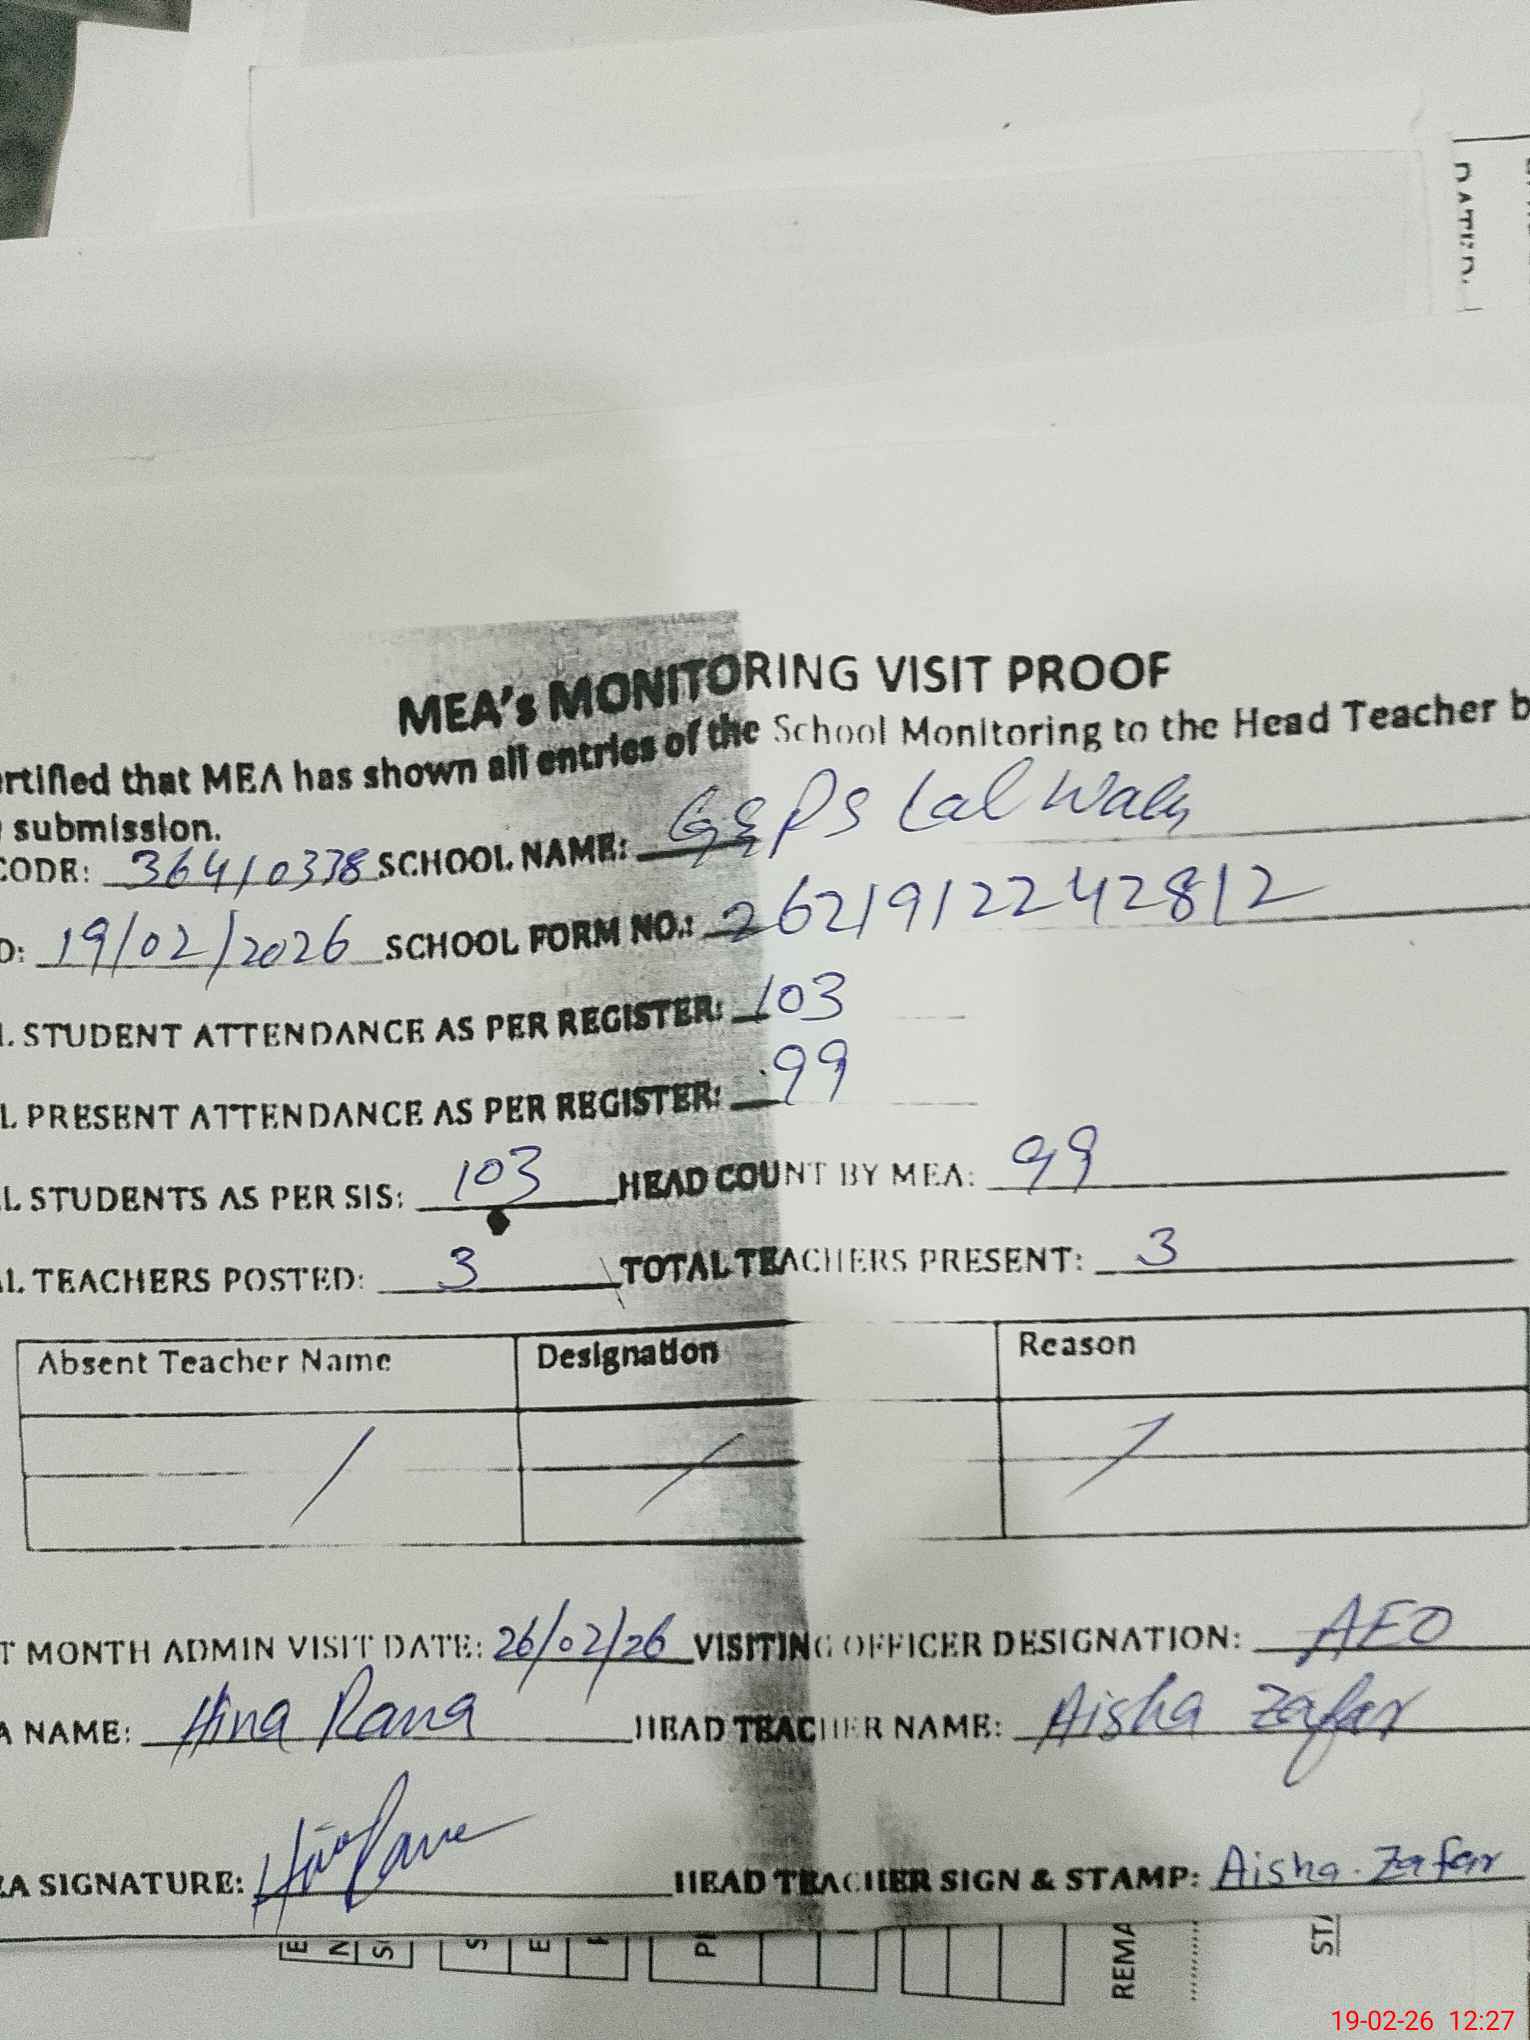 DATED.
MEA's MONITORING VISIT PROOF
rtified that MEA has shown all entries of the School Monitoring to the Head Teacher b
submission.
CODE: 36410338 SCHOOL NAME: GGPS Lal Wala
D: 19/02/2026 SCHOOL FORM NO.: 2621912242812
L STUDENT ATTENDANCE AS PER REGISTER: 103
L PRESENT ATTENDANCE AS PER REGISTER: 99
L STUDENTS AS PER SIS: 103 HEAD COUNT BY MEA: 99
AL TEACHERS POSTED: 3 TOTAL TEACHERS PRESENT: 3
Absent Teacher Name Designation Reason
T MONTH ADMIN VISIT DATE: 26/02/26 VISITING OFFICER DESIGNATION: AEO
A NAME: Hina Rana HEAD TEACHER NAME: Aisha Zafar
EA SIGNATURE: Hina Rana HEAD TEACHER SIGN & STAMP: Aisha. Zafar
REMA
STA
19-02-26 12:27